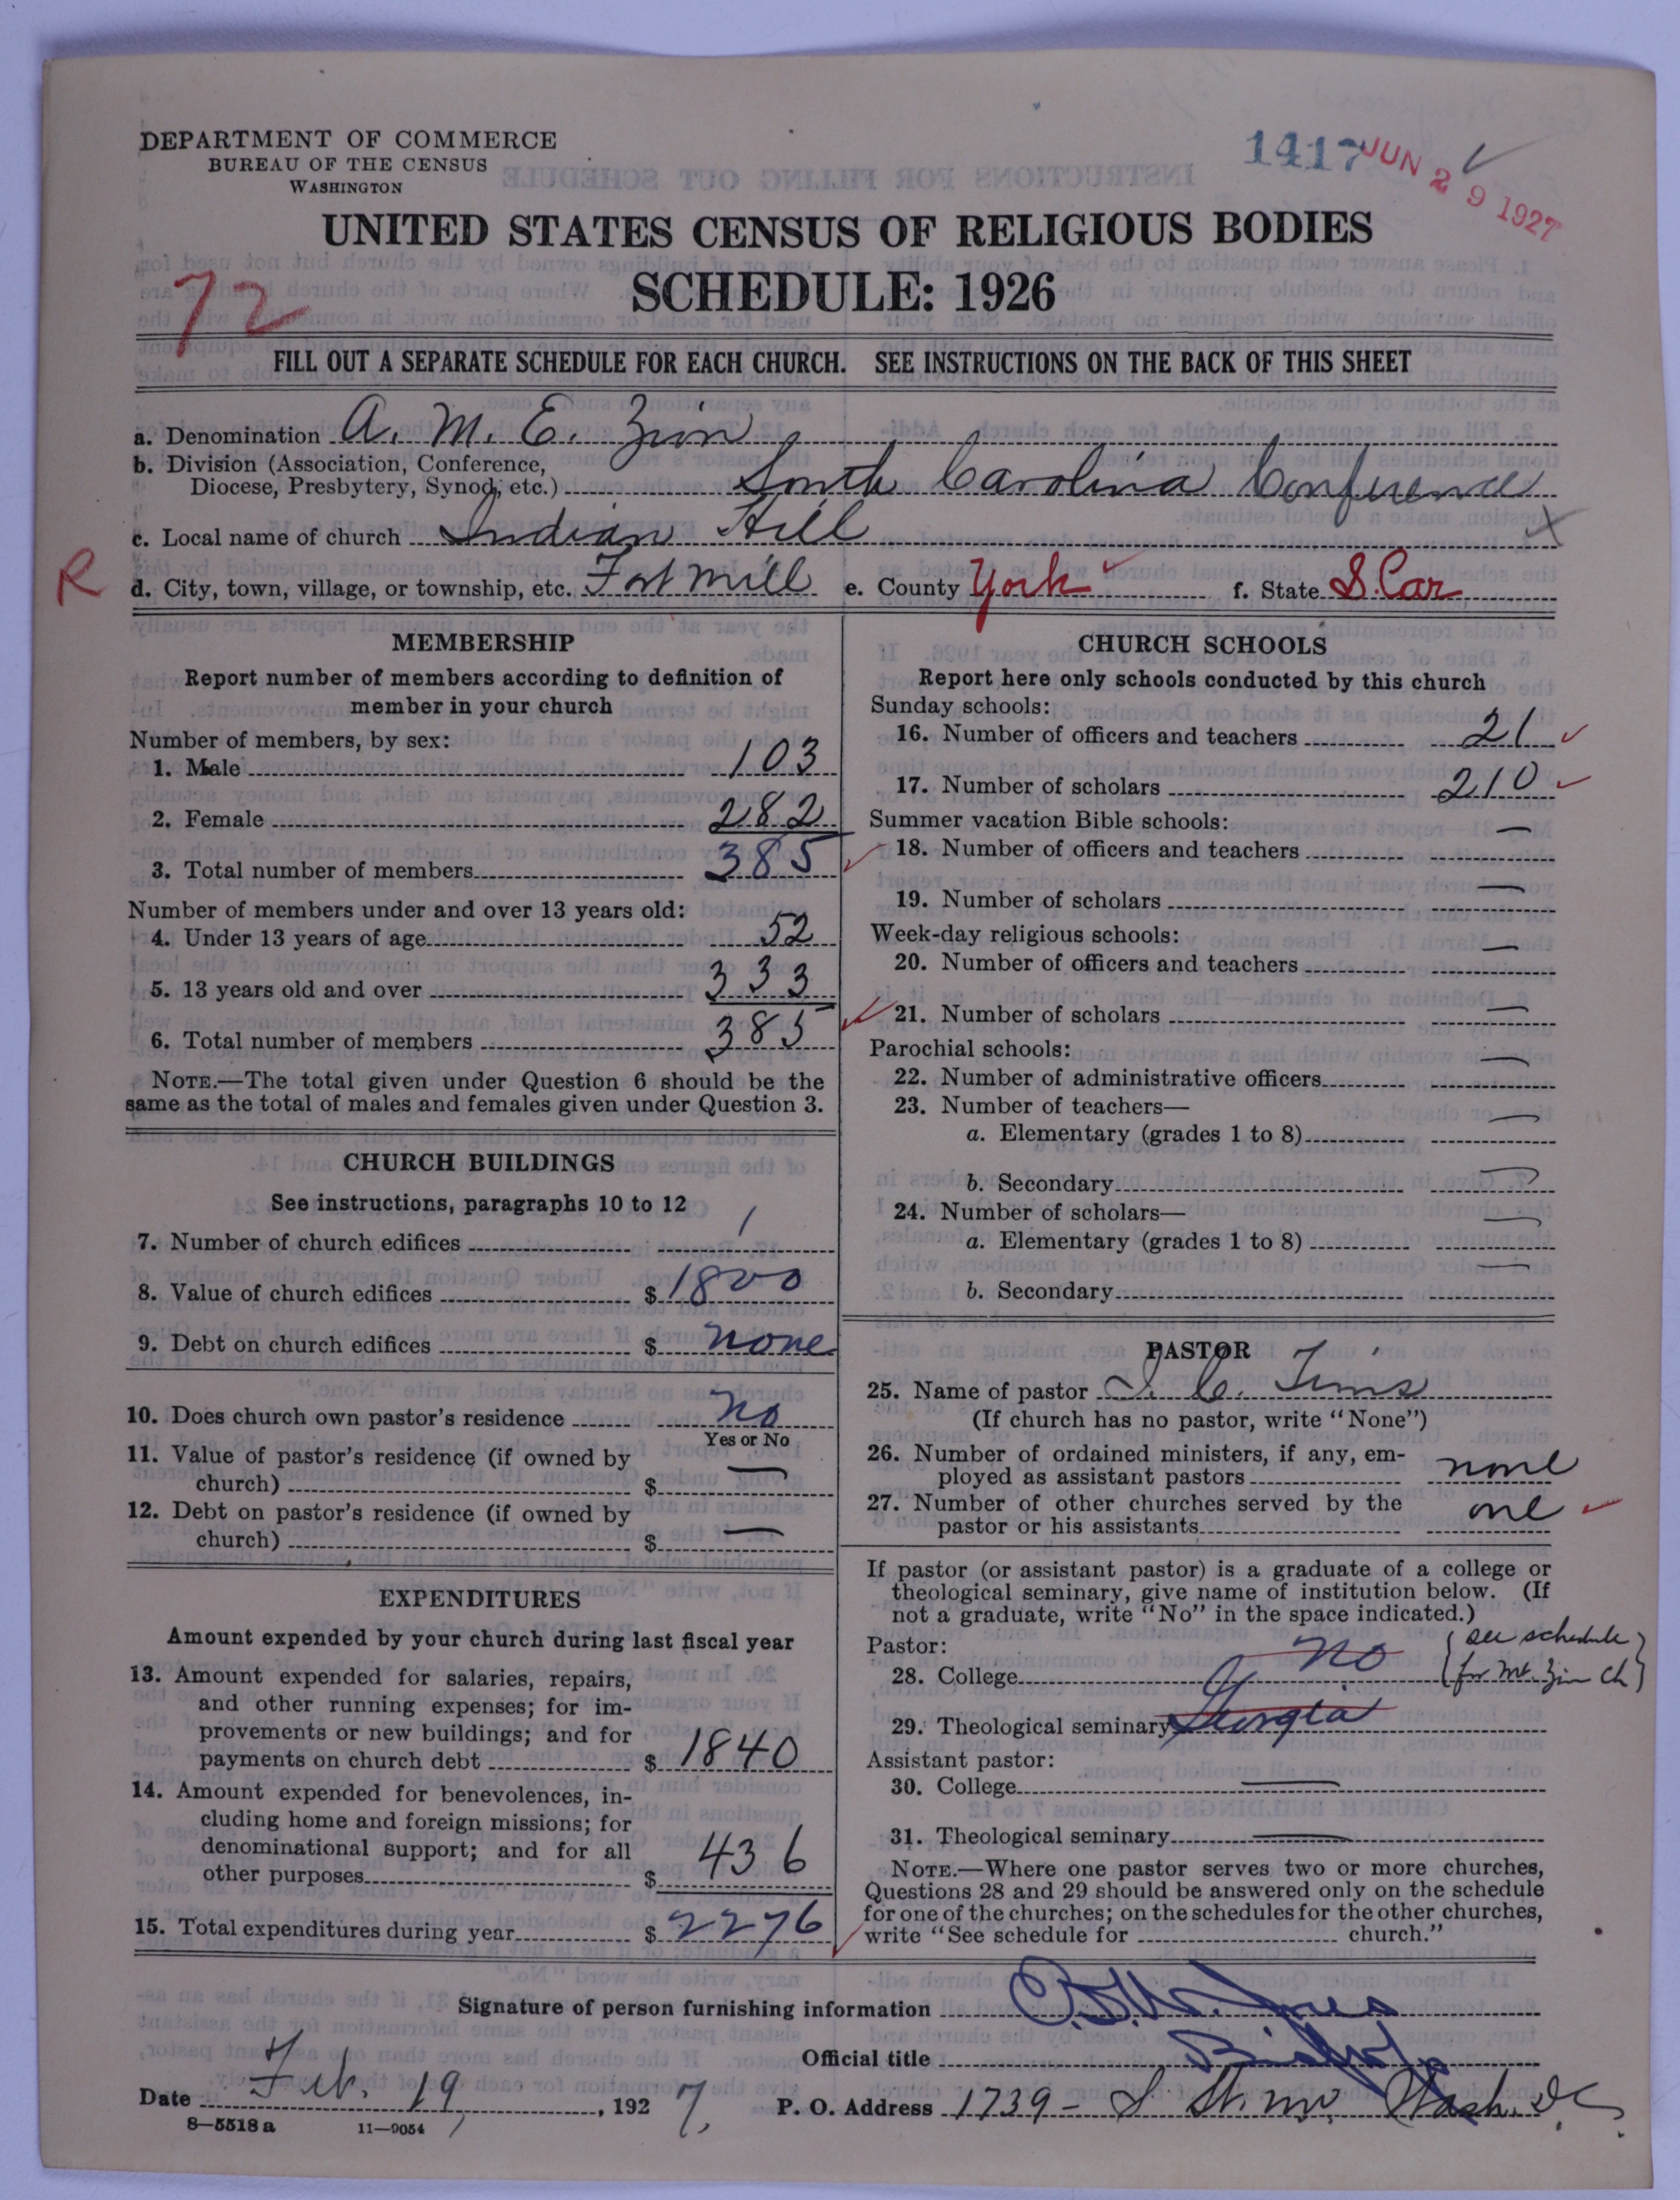 DEPARTMENT OF COMMERCE
BUREAU OF THE CENSUS
WASHINGTON
1417 JUN 29 1927
UNITED STATES CENSUS OF RELIGIOUS BODIES
SCHEDULE: 1926
72
FILL OUT A SEPARATE SCHEDULE FOR EACH CHURCH. SEE INSTRUCTIONS ON THE BACK OF THIS SHEET
a. Denomination A. M. E. Zion
b. Division (Association, Conference,
Diocese, Presbytery, Synod, etc.) South Carolina Conference
c. Local name of church Indian Hill
R d. City, town, village, or township, etc. Fort Mill e. County York f. State S. Car
MEMBERSHIP
Report number of members according to definition of
member in your church
Number of members, by sex:
1. Male 103
2. Female 282
3. Total number of members 385
Number of members under and over 13 years old:
4. Under 13 years of age 52
5. 13 years old and over 333
6. Total number of members 385
NOTE.—The total given under Question 6 should be the
same as the total of males and females given under Question 3.
CHURCH BUILDINGS
See instructions, paragraphs 10 to 12
7. Number of church edifices 1
8. Value of church edifices $ 1800
9. Debt on church edifices $ none
10. Does church own pastor's residence no
Yes or No
11. Value of pastor's residence (if owned by
church) $ —
12. Debt on pastor's residence (if owned by
church) $ —
EXPENDITURES
Amount expended by your church during last fiscal year
13. Amount expended for salaries, repairs,
and other running expenses; for im-
provements or new buildings; and for
payments on church debt $ 1840
14. Amount expended for benevolences, in-
cluding home and foreign missions; for
denominational support; and for all
other purposes $ 436
15. Total expenditures during year $ 2276
CHURCH SCHOOLS
Report here only schools conducted by this church
Sunday schools:
16. Number of officers and teachers 21
17. Number of scholars 210
Summer vacation Bible schools:
18. Number of officers and teachers —
19. Number of scholars —
Week-day religious schools:
20. Number of officers and teachers —
21. Number of scholars —
Parochial schools:
22. Number of administrative officers —
23. Number of teachers—
a. Elementary (grades 1 to 8) —
b. Secondary —
24. Number of scholars—
a. Elementary (grades 1 to 8) —
b. Secondary —
PASTOR
25. Name of pastor I. C. Tims
(If church has no pastor, write "None")
26. Number of ordained ministers, if any, em-
ployed as assistant pastors none
27. Number of other churches served by the
pastor or his assistants one
If pastor (or assistant pastor) is a graduate of a college or
theological seminary, give name of institution below. (If
not a graduate, write "No" in the space indicated.)
Pastor: (see schedule
28. College no for Mt. Zion Ch)
29. Theological seminary Georgia
Assistant pastor:
30. College —
31. Theological seminary —
NOTE.—Where one pastor serves two or more churches,
Questions 28 and 29 should be answered only on the schedule
for one of the churches; on the schedules for the other churches,
write "See schedule for church."
Signature of person furnishing information Jones
Official title Bishop
Date Feb. 19, 1927. P. O. Address 1739 - S St. nw. Wash. D.C.
8—5518a 11—9054